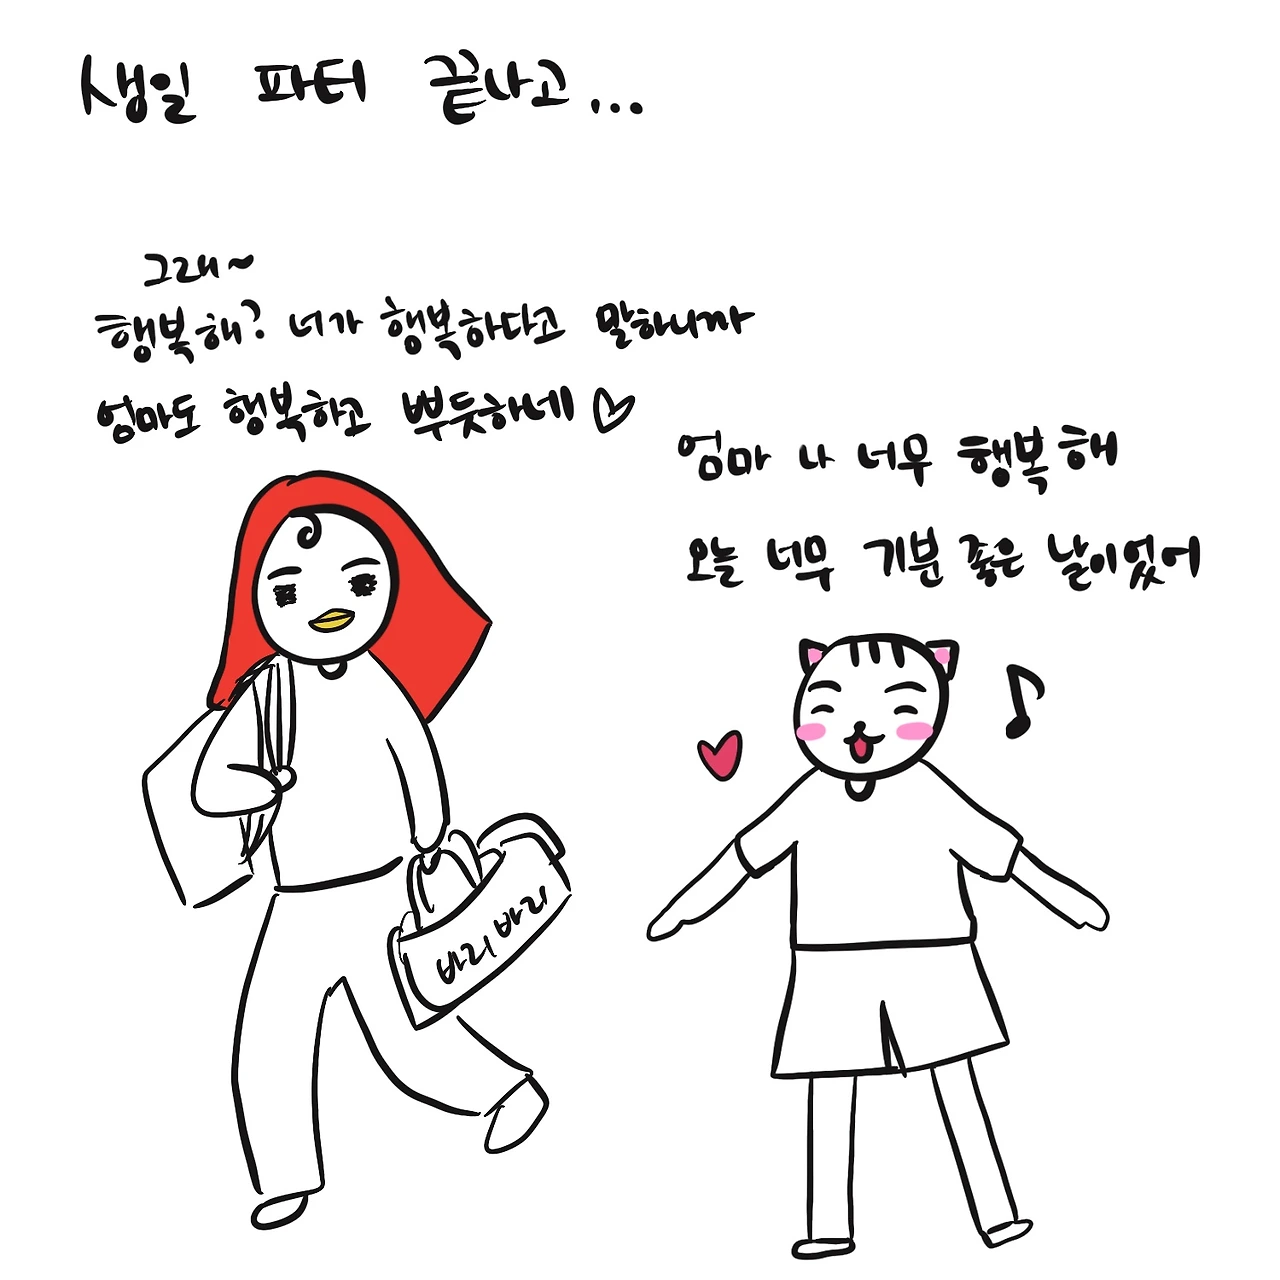 생일 파티 끝나고...
그래~
행복해? 너가 행복하다고 말하니까
엄마도 행복하고 뿌듯하네♡
엄마 나 너무 행복해
오늘 너무 기분 좋은 날이었어
바리바리